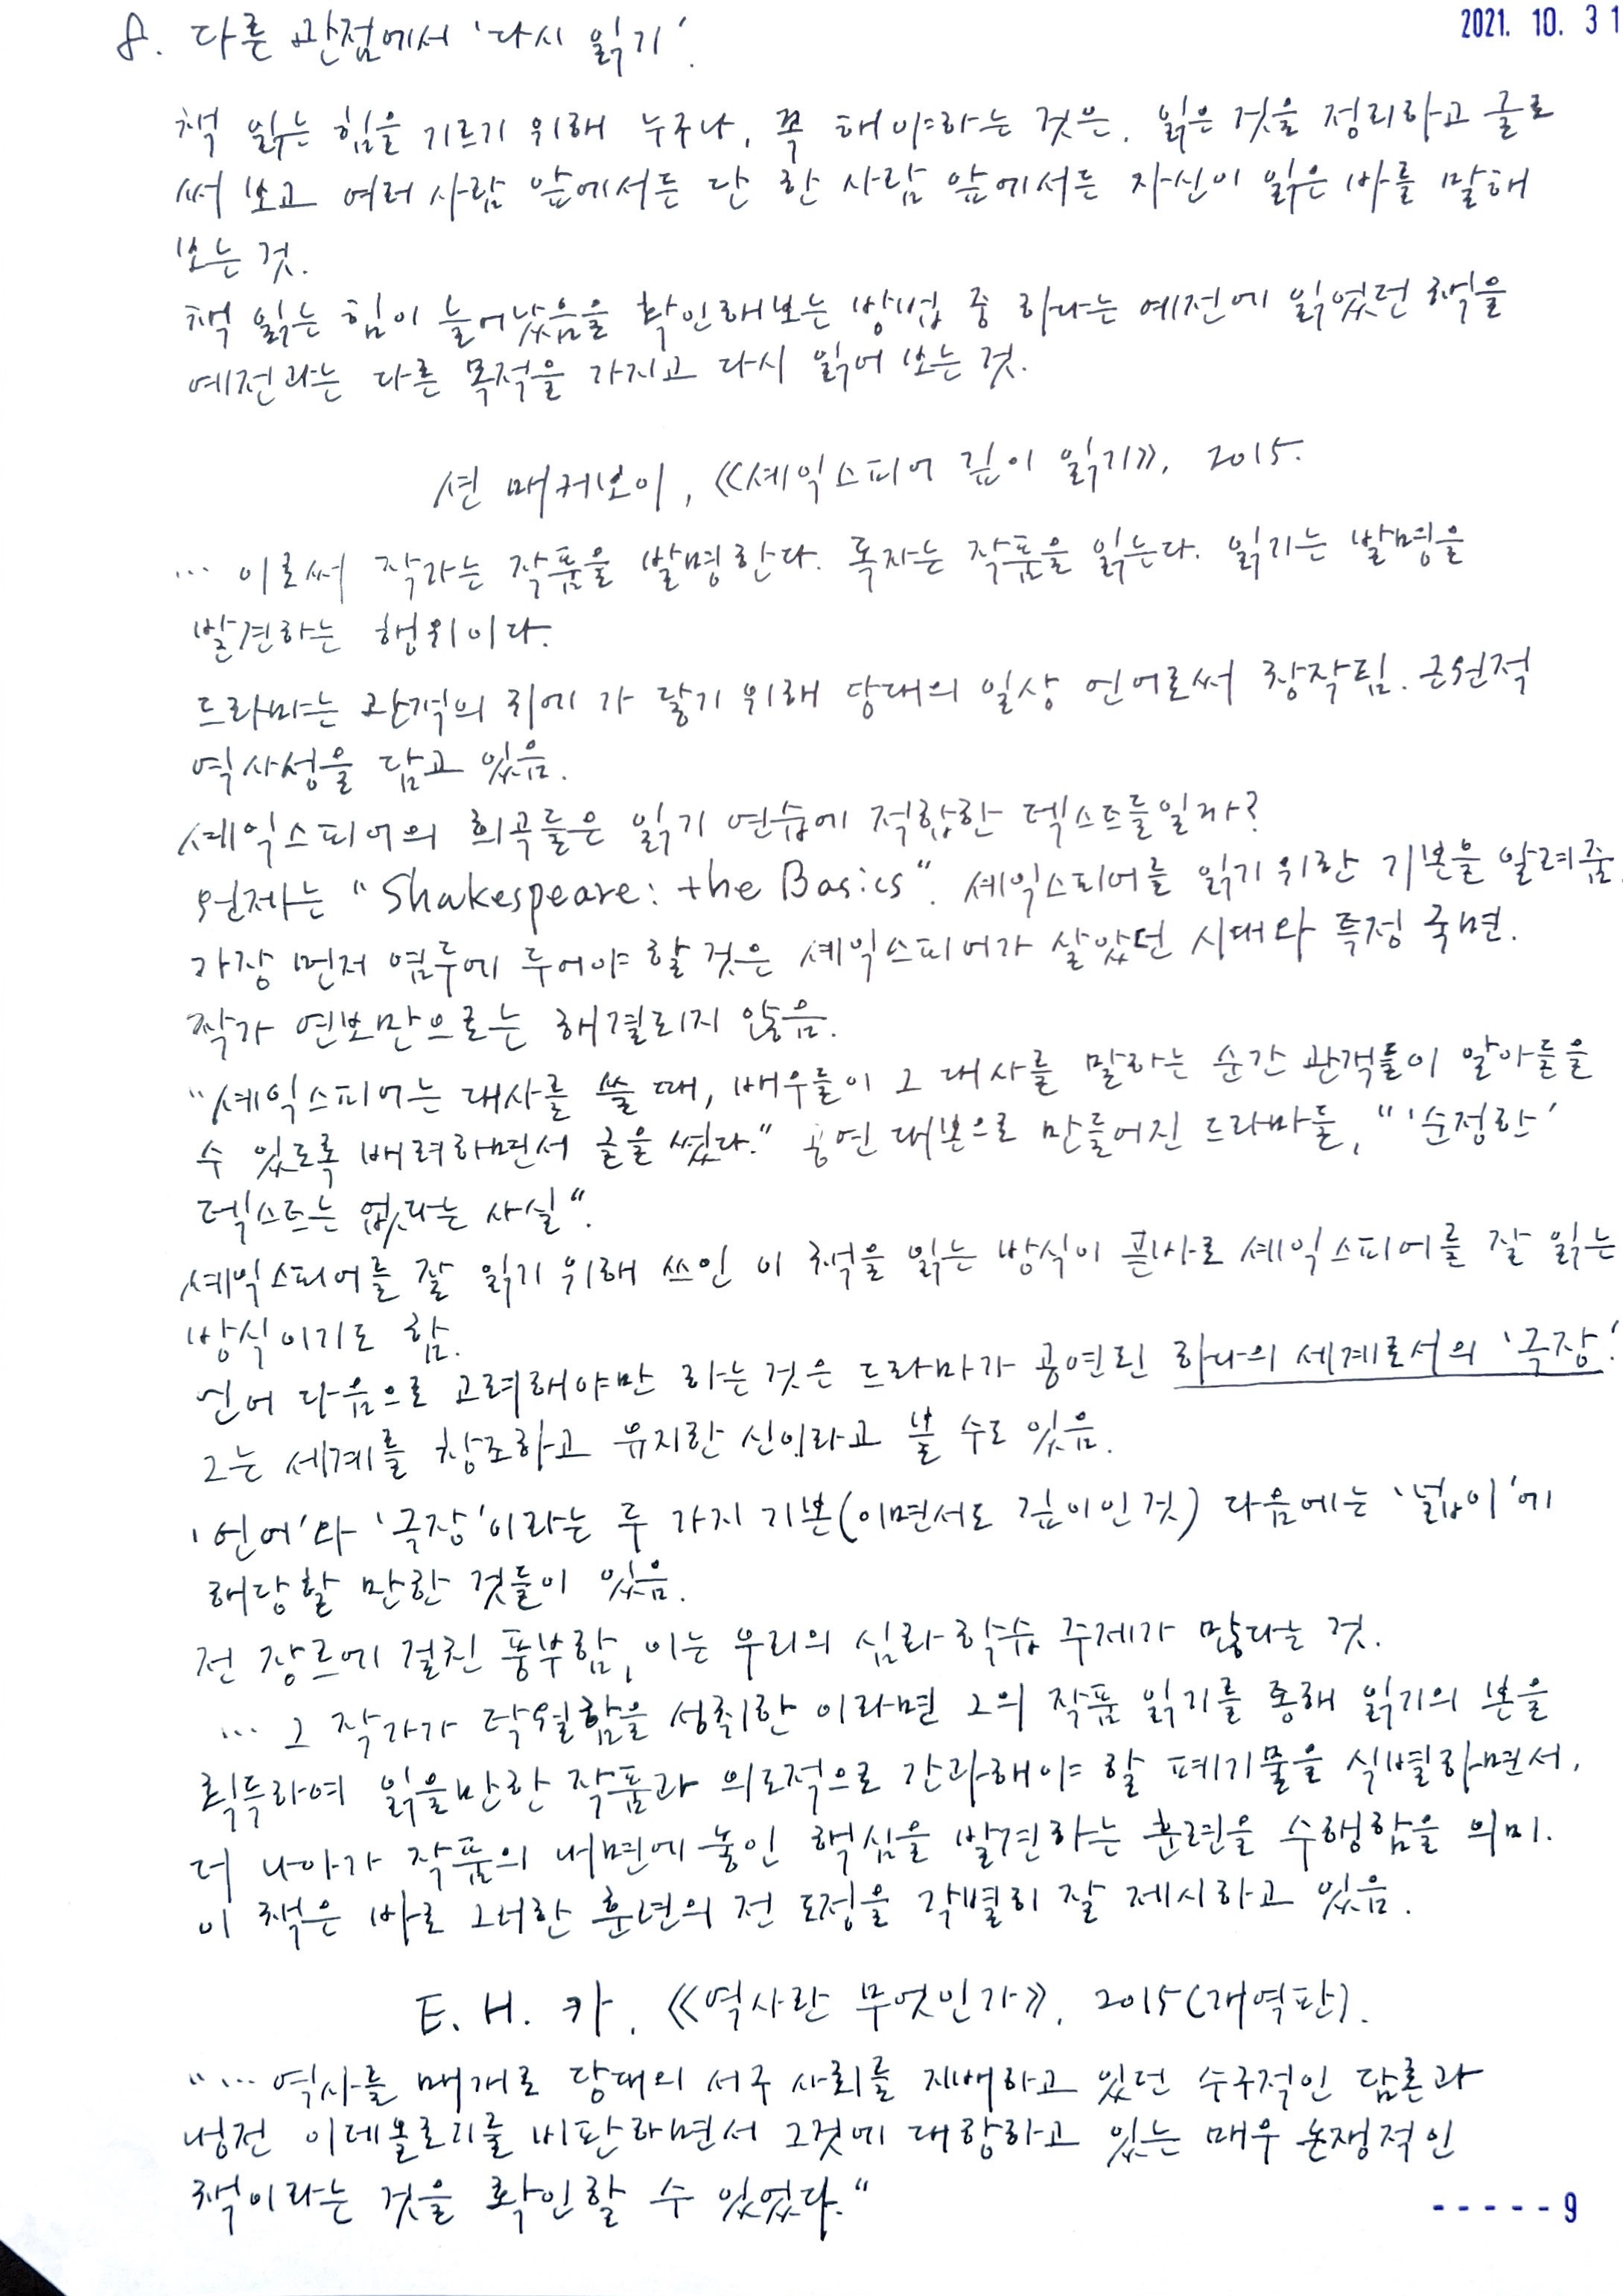 2021. 10. 31
8. 다른 관점에서 '다시 읽기'.
책 읽는 힘을 기르기 위해 누구나, 꼭 해야하는 것은, 읽은 것을 정리하고 글로
써 보고 여러 사람 앞에서든 단 한 사람 앞에서든 자신이 읽은 바를 말해
보는 것.
책 읽는 힘이 늘어났음을 확인해보는 방법 중 하나는 예전에 읽었던 책을
예전과는 다른 목적을 가지고 다시 읽어 보는 것.
션 매커보이, 《셰익스피어 깊이 읽기》, 2015.
… 이로써 작가는 작품을 발명한다. 독자는 작품을 읽는다. 읽기는 발명을
발견하는 행위이다.
드라마는 관객의 귀에 가 닿기 위해 당대의 일상 언어로써 창작됨. 근원적
역사성을 담고 있음.
셰익스피어의 희곡들은 읽기 연습에 적합한 텍스트들일까?
원제는 "Shakespeare: the Basics". 셰익스피어를 읽기 위한 기본을 알려줌.
가장 먼저 염두에 두어야 할 것은 셰익스피어가 살았던 시대와 특정 국면.
작가 연보만으로는 해결되지 않음.
"셰익스피어는 대사를 쓸 때, 배우들이 그 대사를 말하는 순간 관객들이 알아들을
수 있도록 배려하면서 글을 썼다." 공연 대본으로 만들어진 드라마들, "'순정한'
텍스트는 없다는 사실".
셰익스피어를 잘 읽기 위해 쓰인 이 책을 읽는 방식이 곧바로 셰익스피어를 잘 읽는
방식이기도 함.
언어 다음으로 고려해야만 하는 것은 드라마가 공연된 하나의 세계로서의 '극장'.
그는 세계를 창조하고 유지한 신이라고 볼 수도 있음.
'언어'와 '극장'이라는 두 가지 기본(이면서도 깊이인 것) 다음에는 '넓이'에
해당할 만한 것들이 있음.
전 장르에 걸친 풍부함, 이는 우리의 심화 학습 주제가 많다는 것.
… 그 작가가 탁월함을 성취한 이라면 그의 작품 읽기를 통해 읽기의 본을
획득하여 읽을만한 작품과 의도적으로 간과해야 할 폐기물을 식별하면서,
더 나아가 작품의 내면에 놓인 핵심을 발견하는 훈련을 수행함을 의미.
이 책은 바로 그러한 훈련의 전 도정을 각별히 잘 제시하고 있음.
E. H. 카, 《역사란 무엇인가》, 2015(개역판).
"… 역사를 매개로 당대의 서구 사회를 지배하고 있던 수구적인 담론과
냉전 이데올로기를 비판하면서 그것에 대항하고 있는 매우 논쟁적인
책이라는 것을 확인할 수 있었다."
-----9